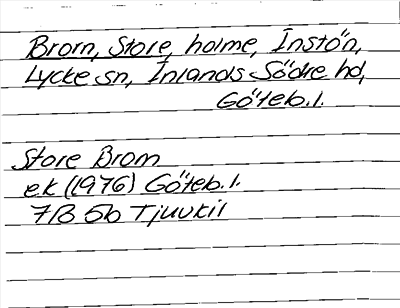 Brorn, Store, holme, Instön,
Lycke sn, Inlands Södre hd,
Göteb. l.
Store Brorn
ek (1976) Göteb. l.
7B 5b Tjuvkil